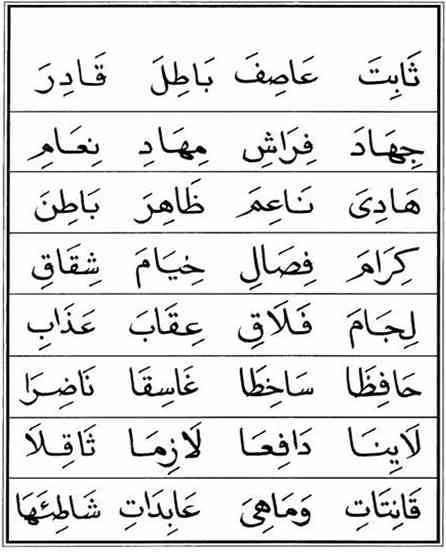 ثَابِتَ عَاصِفَ بَاطِلَ قَادِرَ
جِهَادَ فِرَاشِ مِهَادِ نِعَامِ
هَادِىَ نَاعِمَ ظَاهِرَ بَاطِنَ
كِرَامَ فِصَالِ خِيَامَ شِقَاقِ
لِجَامَ فَلَاقِ عِقَابَ عَذَابِ
حَافِظَا سَاخِطَا غَاسِقَا نَاضِرَا
لَايِنَا دَافِعَا لَازِمَا ثَاقِلَا
قَانِتَاتِ وَمَاهِىَ عَابِدَاتِ شَاطِئَهَا